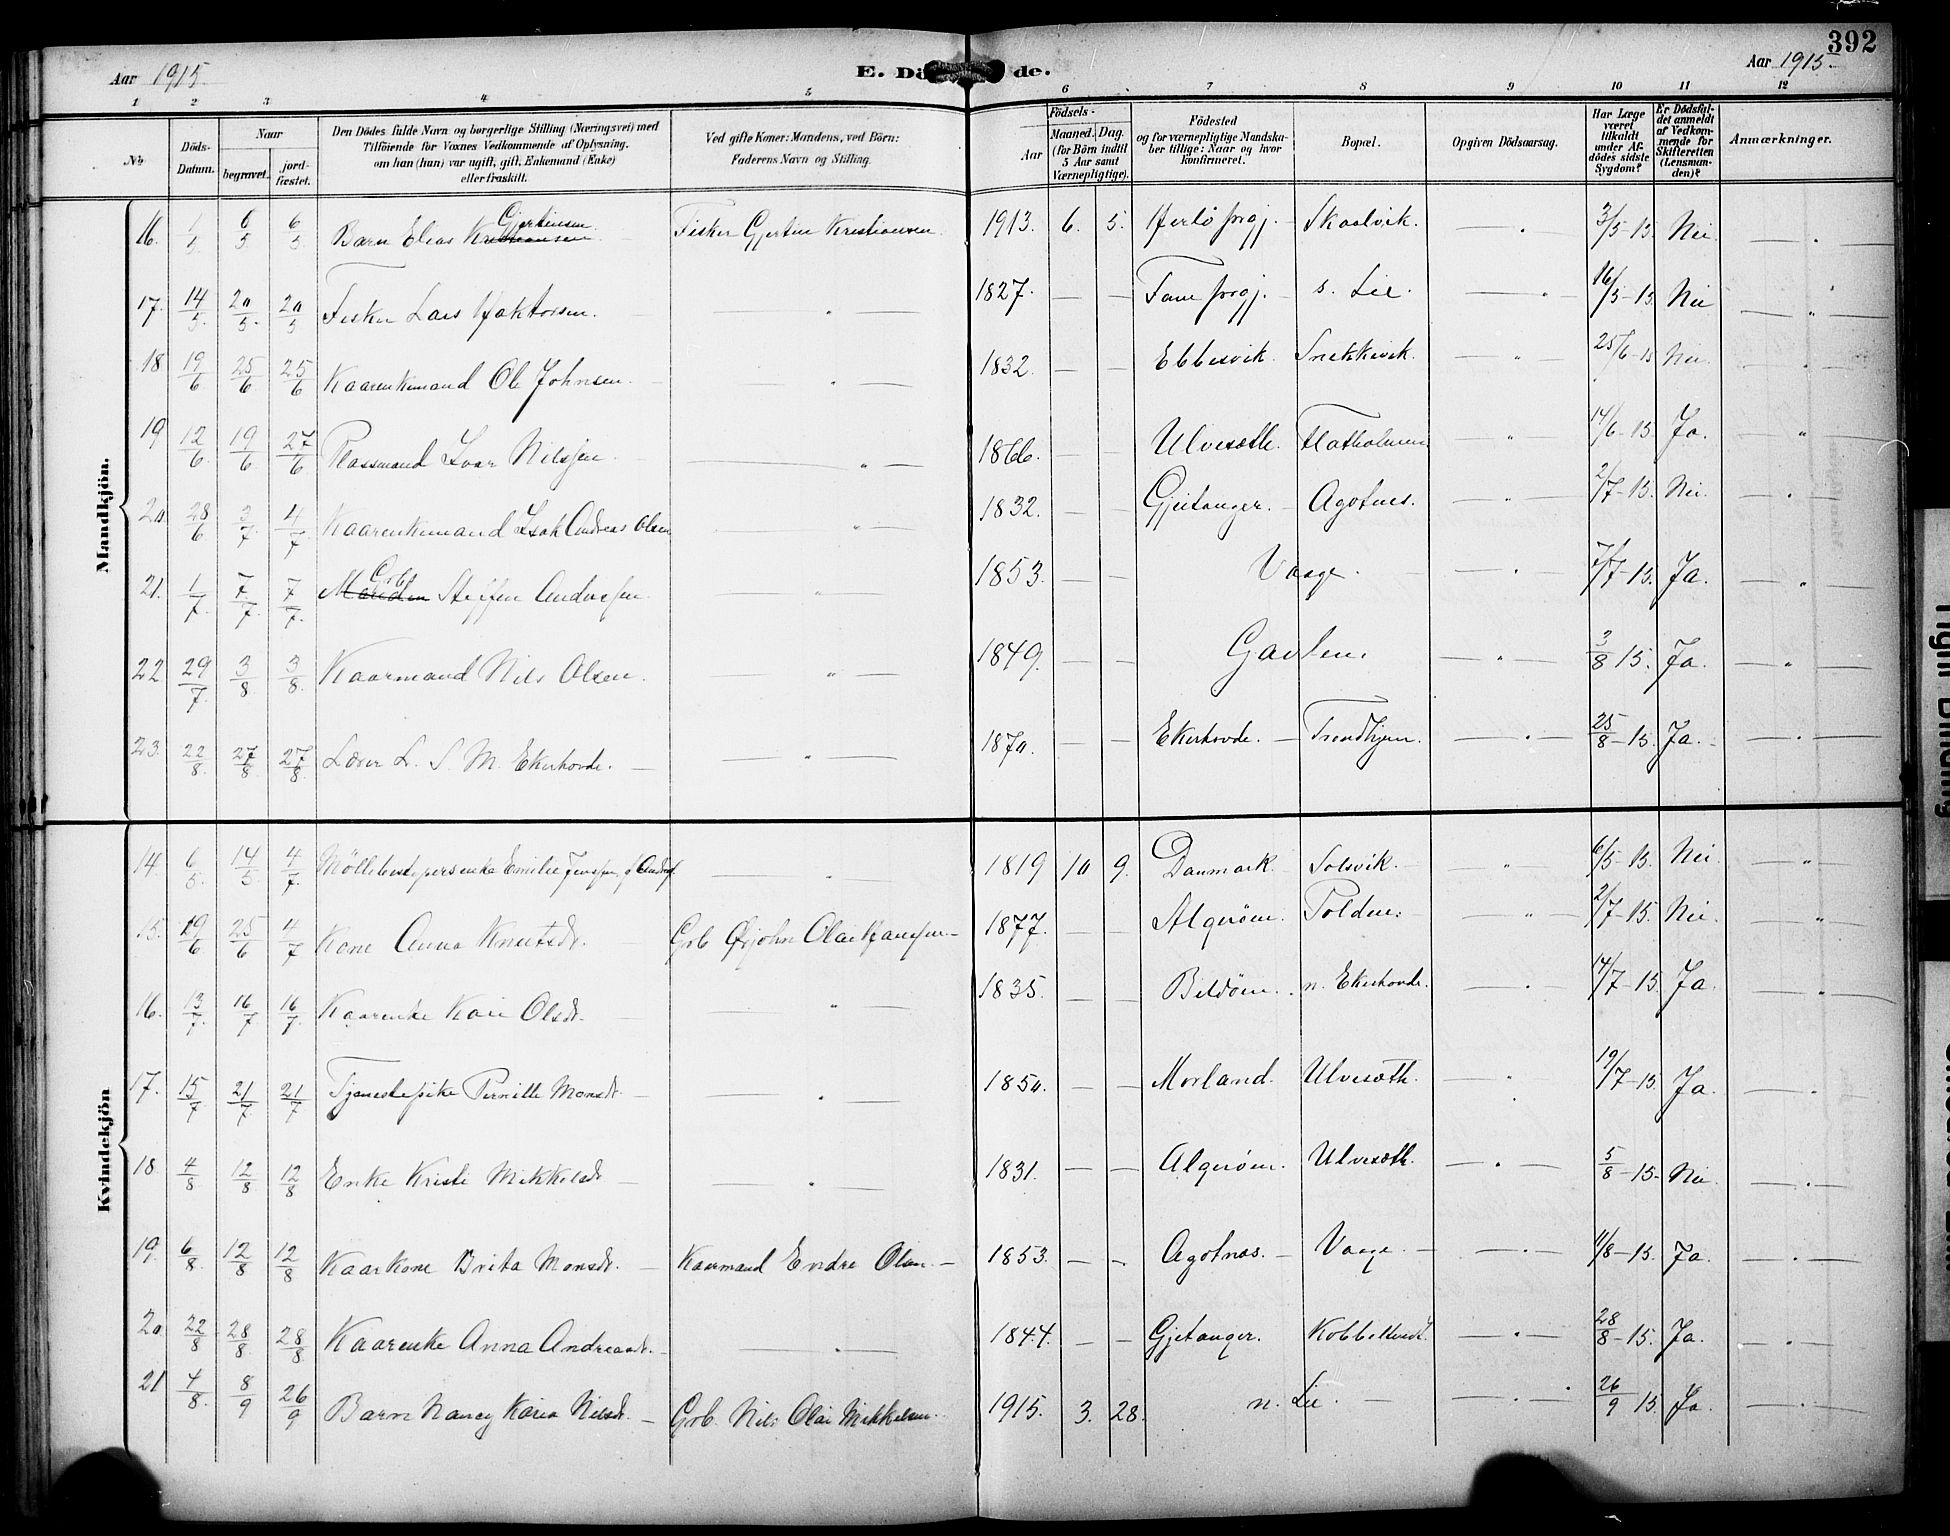 392
Aar 1915
E. Dö de.
Aar 1915.
1 2 3 4 5 6 7 8 9 10 11 12
No
Döds-Datum.
Naar
begravet.
jord-fæstet.
Den Dödes fulde Navn og borgerlige Stilling (Næringsvei) med Tilföiende for Voxnes Vedkommende af Oplysning, om han (hun) var ugift, gift, Enkemand (Enke) eller fraskilt.
Ved gifte Koner: Mandens, ved Börn: Faderens Navn og Stilling.
Födsels-
Aar
Maaned. Dag.
(for Börn indtil 5 Aar samt Værnepligtige).
Födested og for værnepligtige Mandskaber tillige: Naar og hvor konfirmeret.
Bopæl.
Opgiven Dödsaarsag.
Har Læge været tilkaldt under Afdödes sidste Sygdom?
Er Dödsfaldet anmeldt af Vedkommende for Skifteretten (Lensmanden)?
Anmærkninger.
Mandkjön.
16. 1/5 6/5 6/5 Barn Elias Kristiansen Gjertinsen Fisker Gjertin Kristiansen 1913. 6. 5. Herlö prgj. Skaalvik. 3/5-15. Nei.
17. 14/5 20/5 20/5 Fisker Lars Haktorsen. 1827. Fane prgj. s. Lie. 16/5-15. Nei
18 19/6 25/6 25/6 Kaarenkemand Ole Johnsen. 1832. Ebbesvik. Snekkevik. 25/6-15 Nei.
19 12/6 19/6 27/6 Plassmand Ivar Nilssen 1866. Ulvesæth. Flatholmen. 14/6-15. Ja.
20 28/6 3/7 4/7 Kaarenkemand Isak Andreas Olsen 1832. Gjeitanger. Agotnes. 2/7-15. Nei.
21. 1/7 7/7 7/7 Grb. Steffen Anderssen. 1853. Vaage. 7/7-15. Ja.
22 29/7 3/8 3/8 Kaarmand Nils Olsen. 1849. Gavlen. 3/8 15. Ja.
23. 22/8 27/8 27/8 Lærer L. S. M. Ekerhovde. 1870. Ekerhovde. Trondhjem. 25/8-15. Ja.
Kvindekjön
14. 6/5 14/5 4/7 Emilie 1819 10 9. Danmark. Solsvik. 6/5-15. Nei.
15. 19/6 25/6 4/7 Kone Anna Knutsdt. Grb 1877. Algröen. Tolden. 2/7-15. Nei.
16. 13/7 16/7 16/7 Kaarenke Kari Olsdt. 1835. Bildöen. n. Ekerhovde. 14/7-15. Ja
17. 15/7 21/7 21/7 Tjenestepike Pernille Monsdt. 1850. Morland. Ulvesæth. 19/7-15. Ja.
18. 4/8 12/8 12/8 Enke Kristi Mikkelsdt 1831. Algröen. Ulvesæth. 5/8-15. Nei.
19. 6/8 12/8 12/8 Kaarkone Brita Monsdt. Kaarmand Endre Olsen. 1853. Agotnæs. Vaage. 11/8-15. Ja.
20 22/8 28/8 28/8 Kaarenke Anna Andreasdt. 1844. Gjetanger. Kobbeltvedt. 28/8-15. Ja.
21 4/8. 8/9 26/9 Barn Nancy Karia Nilsdt. Grb. Nils Olai Mikkelsen. 1915. 3. 28. n. Lie. 26/9 15. Ja.